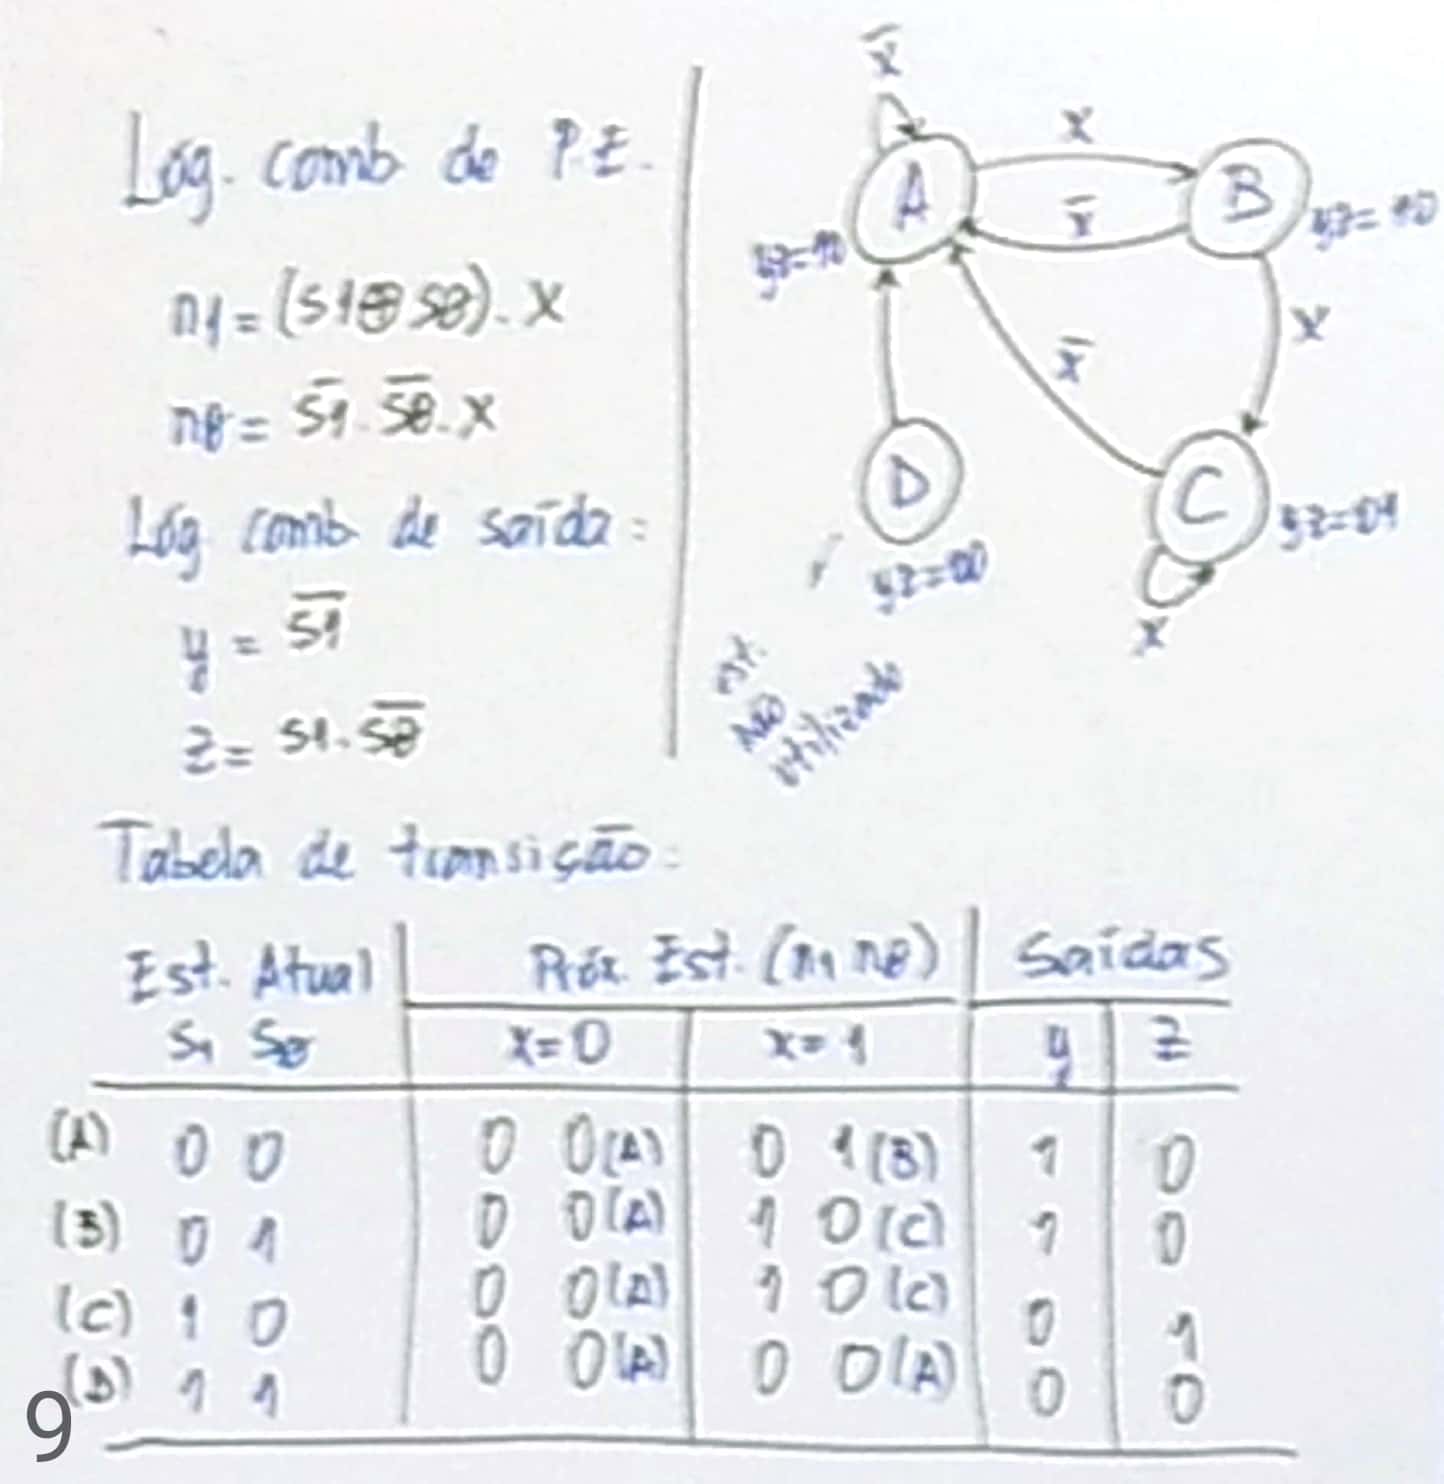 Lóg. comb de P.E.
n1 = (s1⊕s0).x
n0 = s̅1̅.s̅0̅.x
Lóg comb de saída:
y = s̅1̅
z = s1.s̅0̅
x̅
x
A
B
yz=10
x̅
yz=10
x
x̅
D
C
yz=01
yz=00
x
est.
não
utilizado
Tabela de transição:
Est. Atual Próx. Est. (n1 n0) Saídas
S1 S0 x=0 x=1 y z
(A) 0 0 0 0(A) 0 1(B) 1 0
(B) 0 1 0 0(A) 1 0(C) 1 0
(C) 1 0 0 0(A) 1 0(C) 0 1
(D) 1 1 0 0(A) 0 0(A) 0 0
9